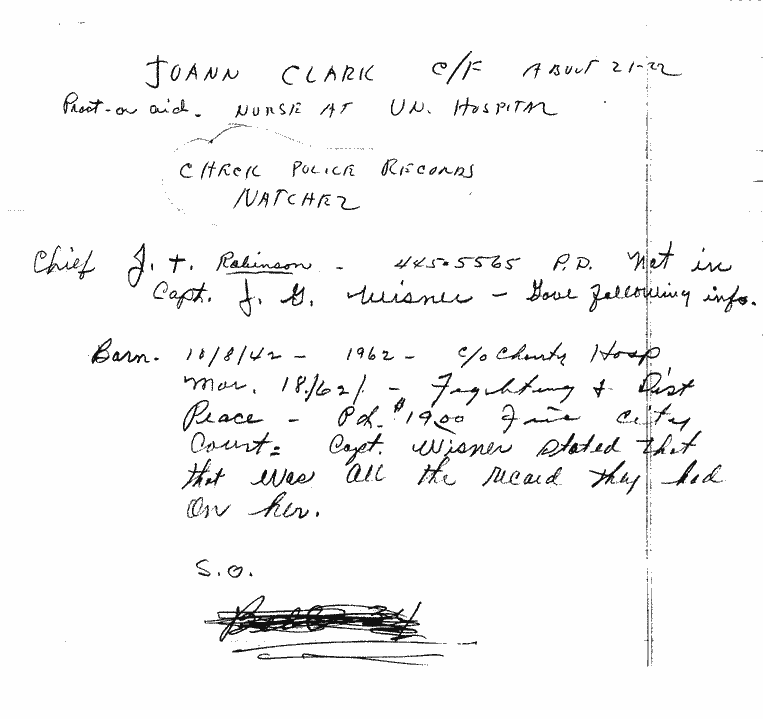 JOANN CLARK C/F ABOUT 21-22
Pract- or aid. NURSE AT UN. HOSPITAL
CHECK POLICE RECORDS
NATCHEZ
Chief J. T. Robinson - 445-5565 P.D. Not in
Capt. J. G. Wisner - Gave following info.
Born. 10/8/42 - 1962 - c/o Charity Hosp
Mar. 18/62/ - Fighting & Dist
Peace - Pd. $19.00 Fine City
Court= Capt. Wisner stated that
that was all the record they had
On her.
S.O.